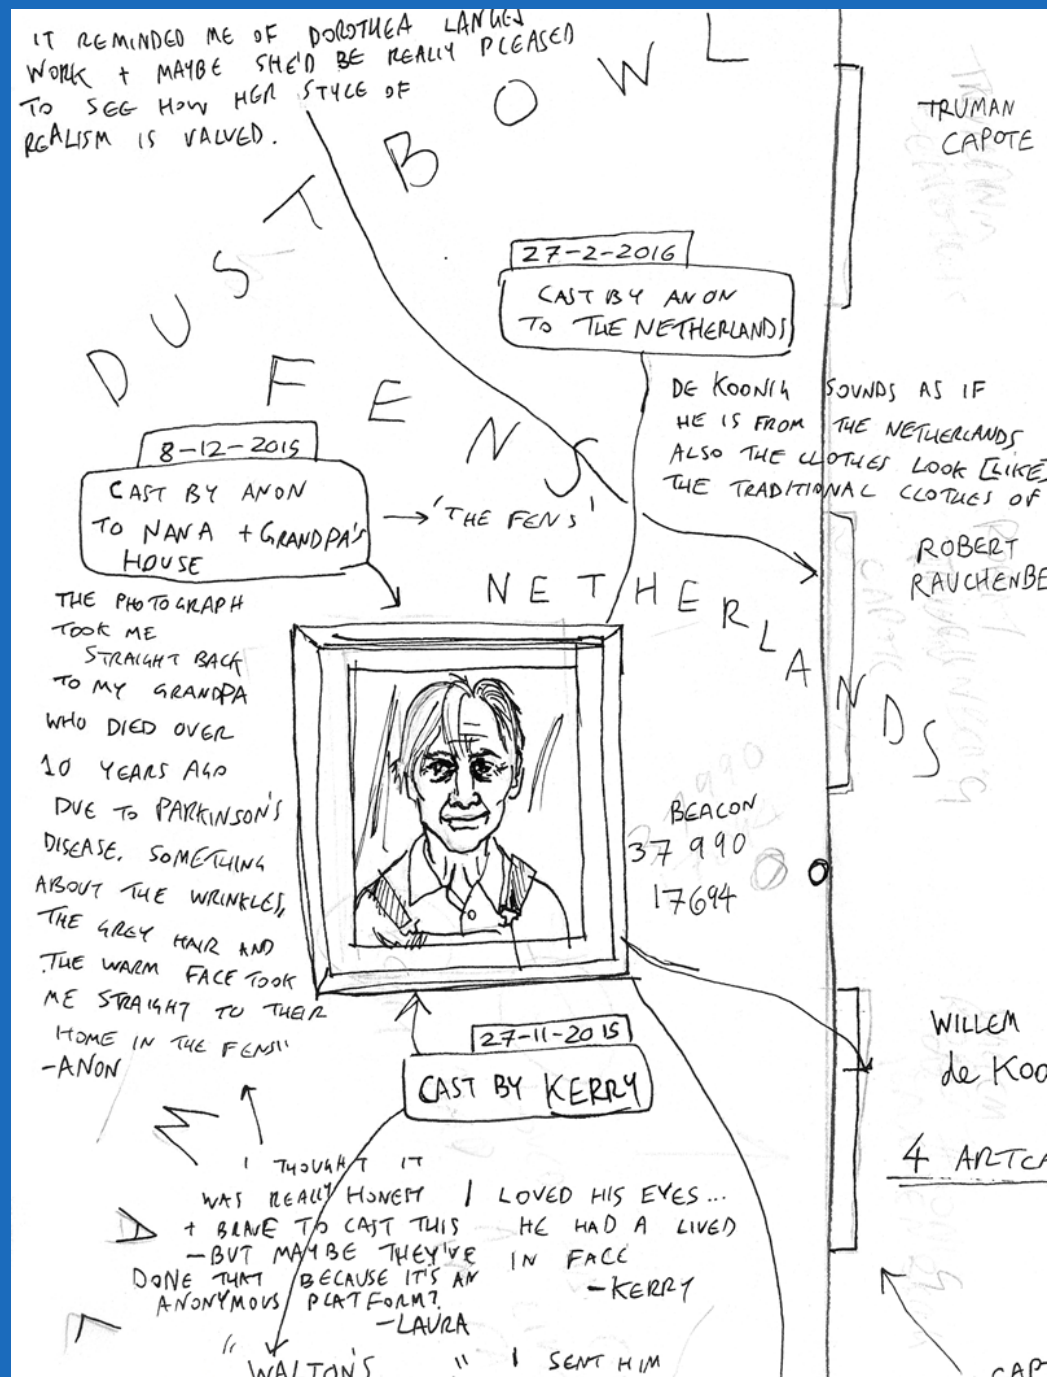 IT REMINDED ME OF DOROTHEA LANGES
WORK + MAYBE SHE'D BE REALLY PLEASED
TO SEE HOW HER STYLE OF
REALISM IS VALUED.
DUST BOWL
TRUMAN
CAPOTE
27-2-2016
CAST BY ANON
TO THE NETHERLANDS
FENS
DE KOONIG SOUNDS AS IF
HE IS FROM THE NETHERLANDS
ALSO THE CLOTHES LOOK [LIKE]
THE TRADITIONAL CLOTHES OF
8-12-2015
CAST BY ANON
TO NANA + GRANDPA'S
HOUSE
→ 'THE FENS'
ROBERT
RAUCHENBE
NETHERLANDS
THE PHOTOGRAPH
TOOK ME
STRAIGHT BACK
TO MY GRANDPA
WHO DIED OVER
10 YEARS AGO
DUE TO PARKINSON'S
DISEASE. SOMETHING
ABOUT THE WRINKLES,
THE GREY HAIR AND
THE WARM FACE TOOK
ME STRAIGHT TO THEIR
HOME IN THE FENS"
-ANON
BEACON
37990
17694
27-11-2015
CAST BY KERRY
WILLEM
de KOO
4 ARTCA
I THOUGHT IT
WAS REALLY HONEST
+ BRAVE TO CAST THIS
- BUT MAYBE THEY'VE
DONE THAT BECAUSE IT'S AN
ANONYMOUS PLATFORM?
-LAURA
I LOVED HIS EYES...
HE HAD A LIVED
IN FACE
-KERRY
"WALTON'S"
I SENT HIM
CAPT